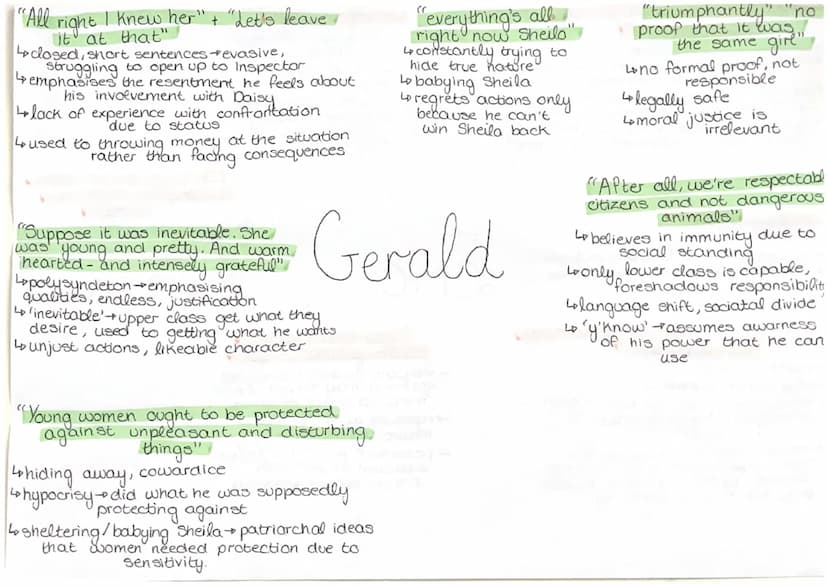 "All right I knew her" + "Let's leave
it at that"
↳closed, short sentences→evasive,
struggling to open up to Inspector
↳emphasises the resentment he feels about
his involvement with Daisy
↳lack of experience with confrontation
due to status
↳used to throwing money at the situation
rather than facing consequences
"everything's all
right now Sheila"
↳constantly trying to
hide true nature
↳babying Sheila
↳regrets actions only
because he can't
win Sheila back
"triumphantly" "no
proof that it was
the same girl"
↳no formal proof, not
responsible
↳legally safe
↳moral justice is
irrelevant
"Suppose it was inevitable. She
was young and pretty. And warm
hearted - and intensely grateful"
↳polysyndeton→emphasising
qualities, endless, justification
↳'inevitable'→upper class get what they
desire, used to getting what he wants
↳unjust actions, likeable character
Gerald
"After all, we're respectable
citizens and not dangerous
animals"
↳believes in immunity due to
social standing
↳only lower class is capable,
foreshadows responsibility
↳language shift, sociatal divide
↳'y'know'→assumes awarness
of his power that he can
use
"Young women ought to be protected
against unpleasant and disturbing
things"
↳hiding away, cowardice
↳hypocrisy→did what he was supposedly
protecting against
↳sheltering/babying Sheila→patriarchal ideas
that women needed protection due to
sensitivity.